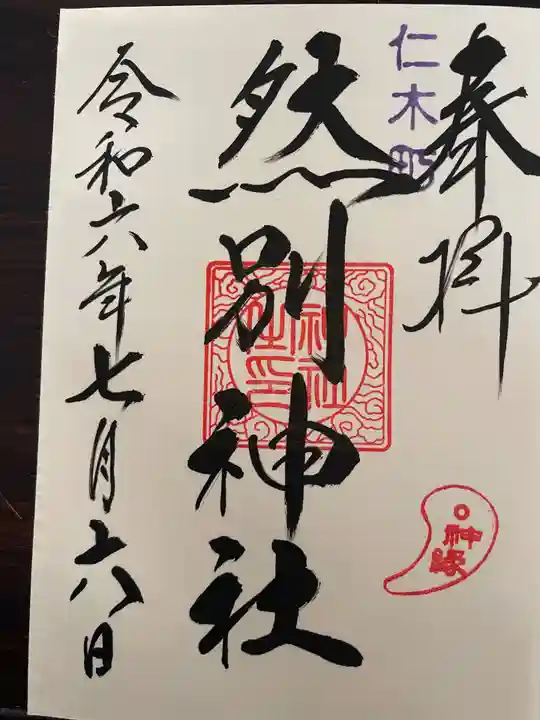 奉拝
仁木町
然別神社
神社
社印
神縁
令和六年七月六日